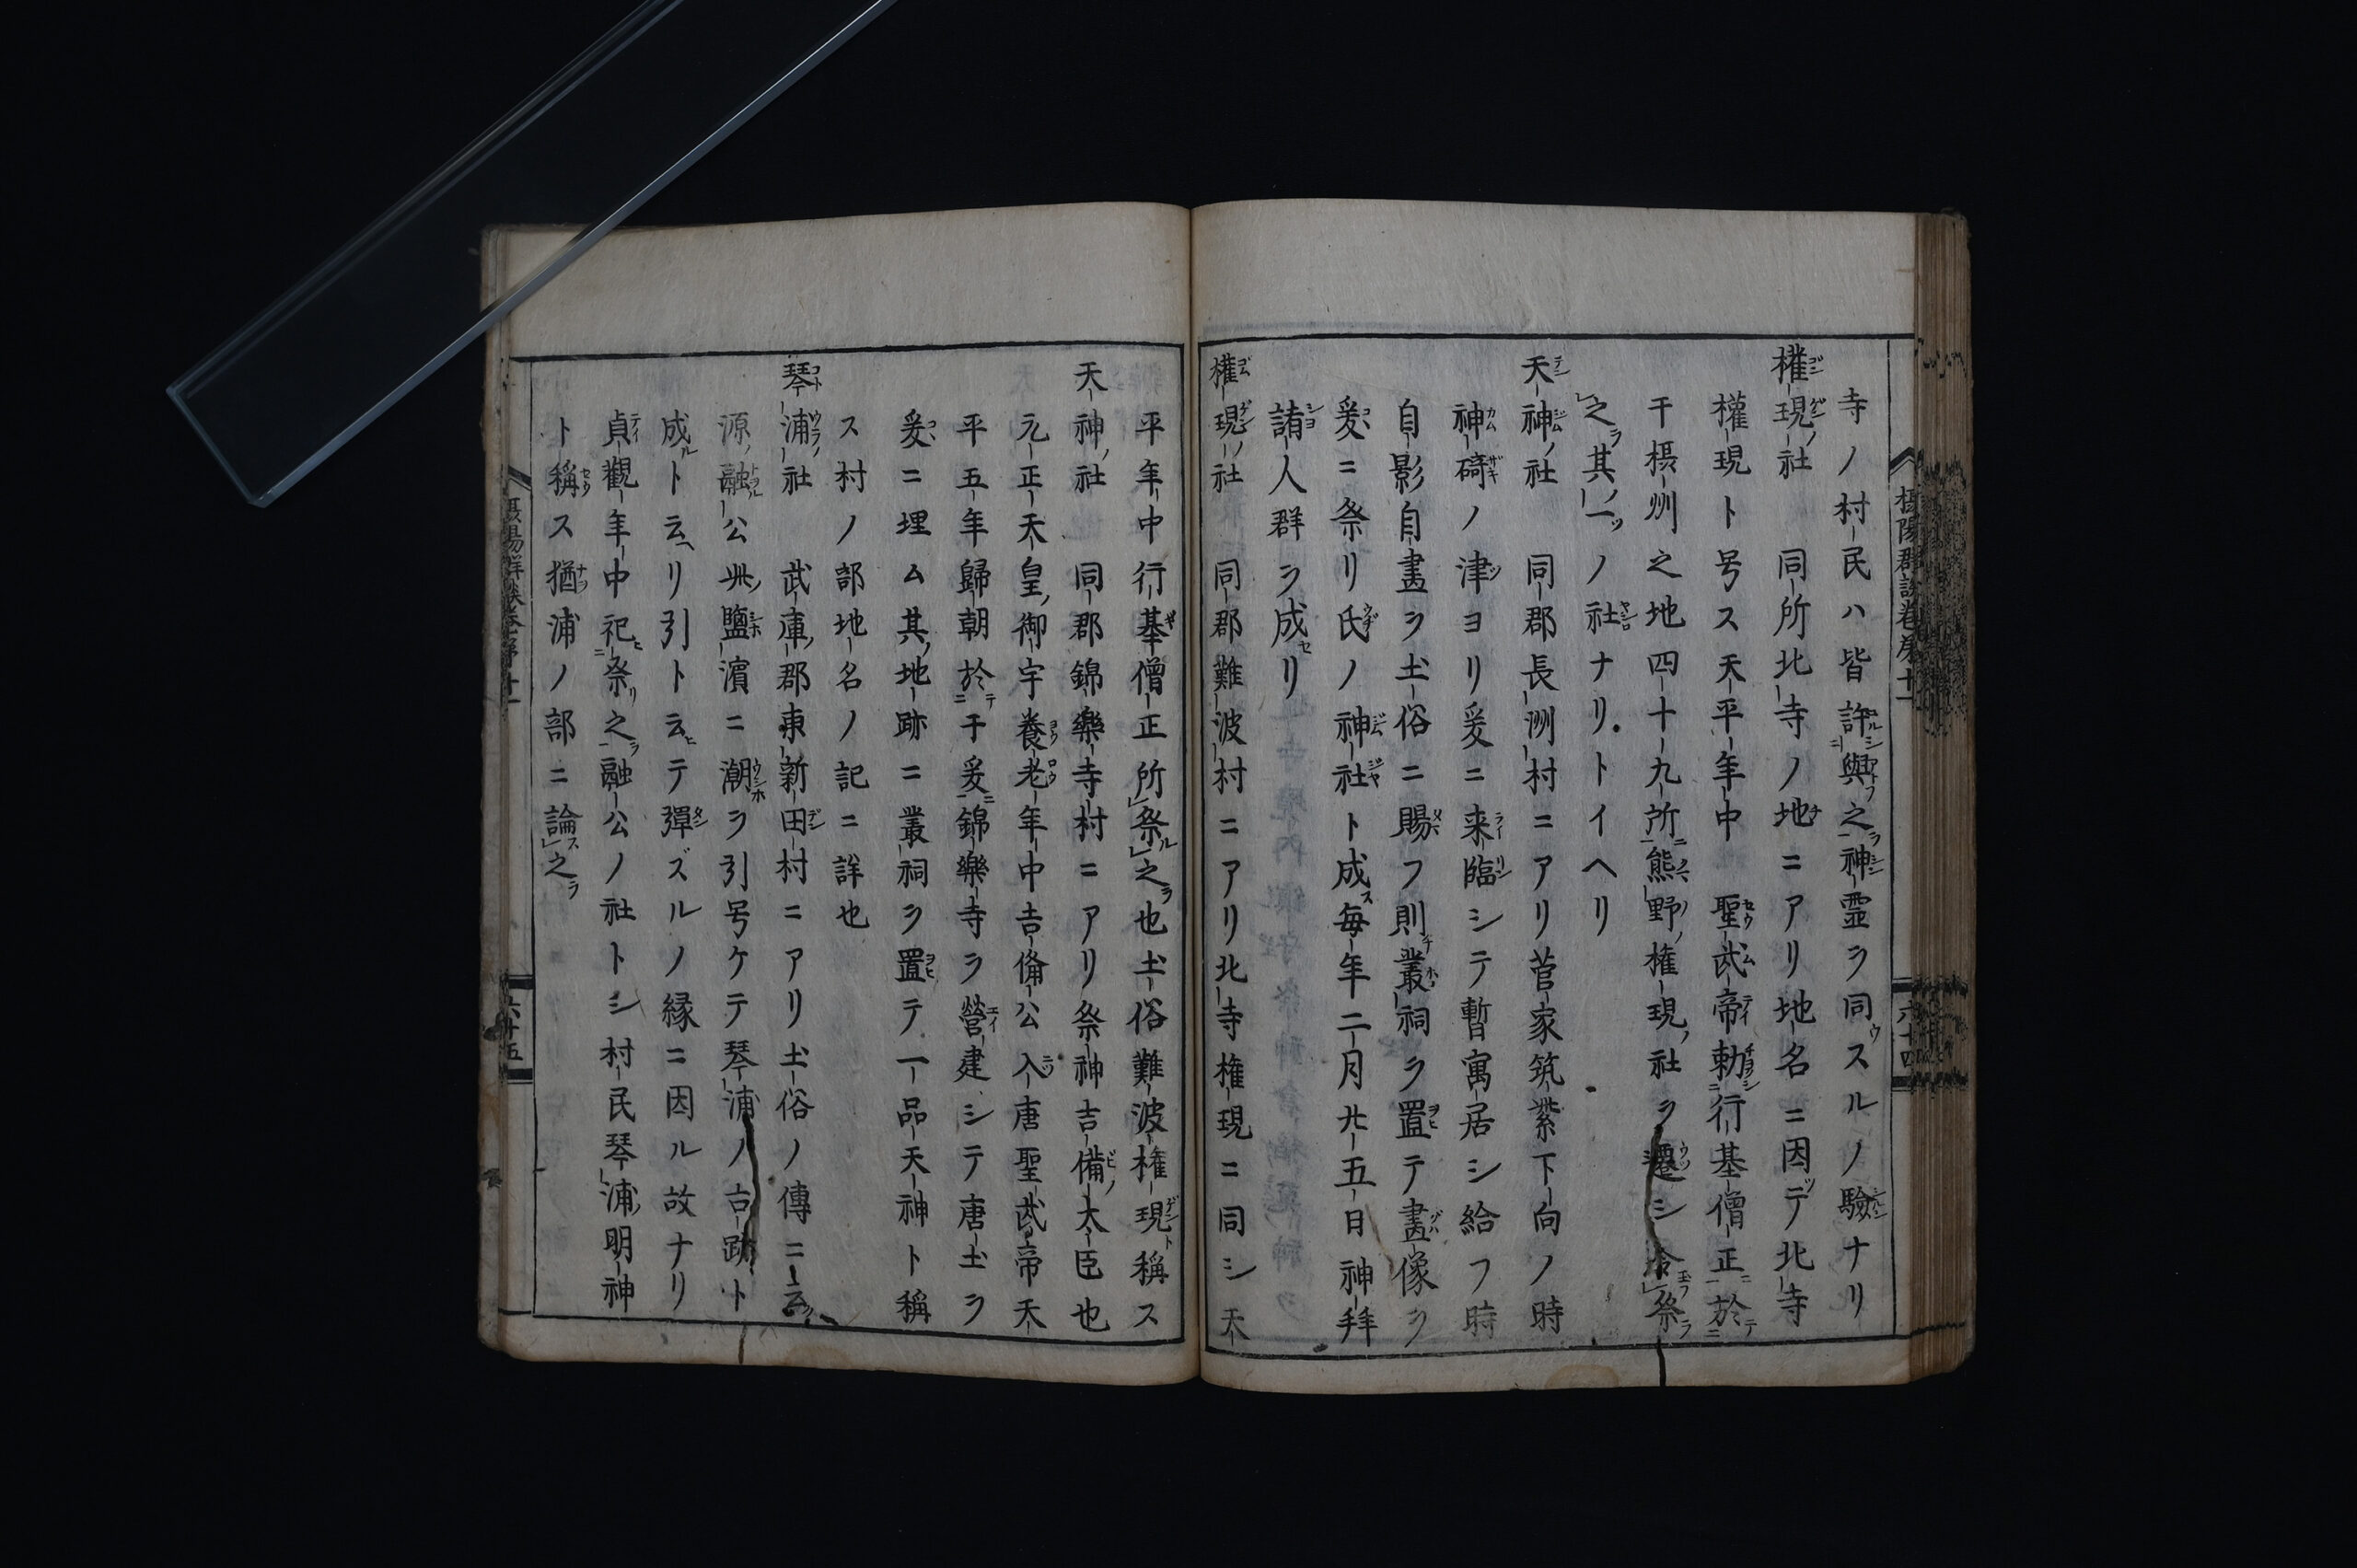 寺ノ村民ハ皆許與之神霊ヲ同スルノ驗ナリ
權現ノ社　同所北寺ノ地ニアリ地名ニ因デ北寺
權現ト号ス天平年中　聖武帝勅行基僧正於
干摂州之地四十九所熊野権現ノ社ヲ遷シ令祭
之其一ノ社ナリトイヘリ
天神ノ社　同郡長洲村ニアリ菅家筑紫下向ノ時
神﨑ノ津ヨリ爰ニ来臨シテ暫寓居シ給フ時
自影自畫ヲ土俗ニ賜フ則叢祠ヲ置テ畫像ヲ
爰ニ祭リ氏ノ神社ト成毎年二月廿五日神拜
諸人群ヲ成リ
權現ノ社　同郡難波村ニアリ北寺権現ニ同シ天
平年中行基僧正所祭之也土俗難波権現稱ス
天神ノ社　同郡錦樂寺村ニアリ祭神吉備大臣也
元正天皇御宇養老年中吉備公入唐聖武帝天
平五年歸朝於干爰錦樂寺ヲ營建シテ唐土ヲ
爰ニ埋ム其地跡ニ叢祠ヲ置テ一品天神ト稱
ス村ノ部地名ノ記ニ詳也
琴浦社　武庫郡東新田村ニアリ土俗ノ傳ニ云
源融公此鹽濱ニ潮ヲ引号ケテ琴浦ノ古跡ト
成ト云リ引ト云テ彈ズルノ縁ニ因ル故ナリ
貞觀年中祀祭之融公ノ社トシ村民琴浦明神
ト稱ス猶浦ノ部ニ論之
摂陽群談巻第十一
六十四
六十五